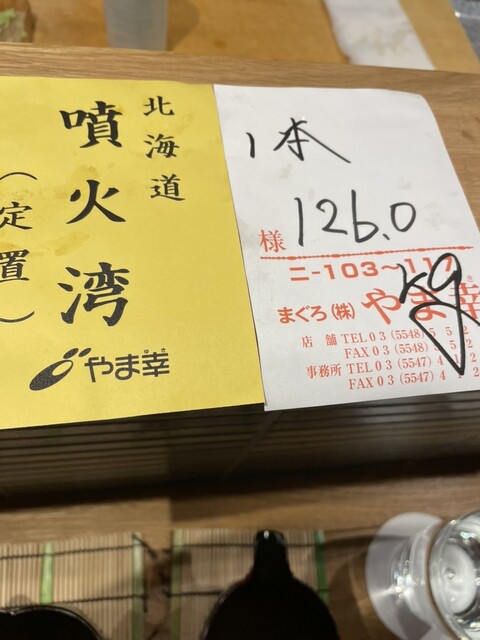 北海道
噴火湾
(定置)
やま幸
1本
126.0
kg
様
ニ-103~117
まぐろ(株)やま幸
店舗 TEL 03(5548)5 5 2
FAX 03(5548) 5 2
事務所 TEL 03(5547)4 1 2
FAX 03(5547)4 1 2